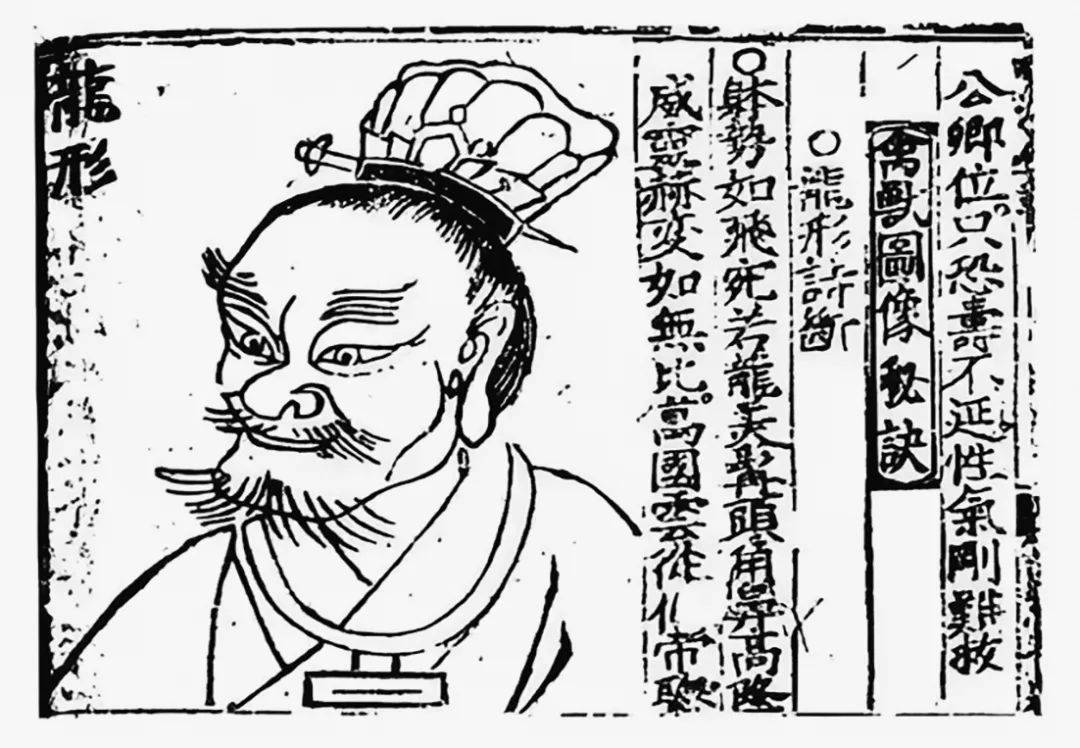 公卿位。只恐壽不延性氣剛難救
禽獸圖像秘訣
○龍形詩斷
○躰勢如飛宛若龍美髯頭角鼻高隆
威靈赫奕如無比。萬國雲從帝
龍形